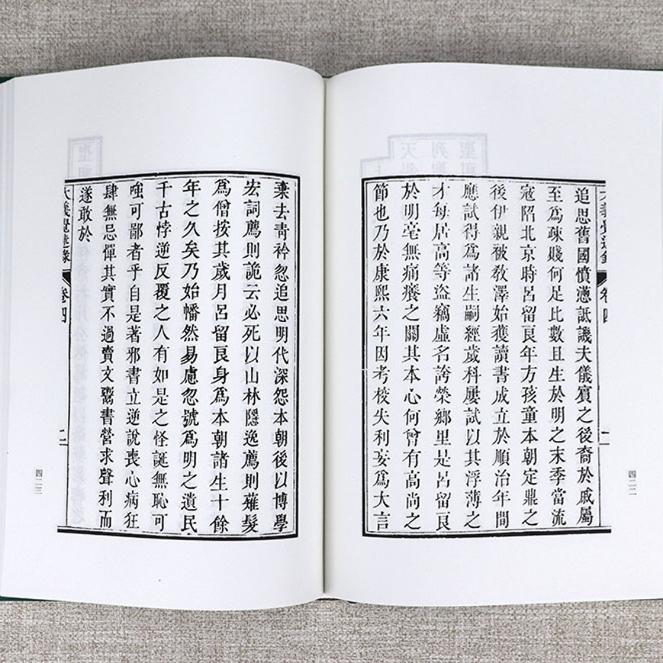 大義覺迷錄 卷四
四二二
追思舊國憤懣詆譏夫儀賓之後裔於戚屬
至爲疎賤何足比數且生於明之末季當流
寇陷北京時呂留良年方孩童本朝定鼎之
後伊親被敎澤始獲讀書成立於順治年間
應試得爲諸生嗣經歲科屢試以其浮薄之
才每居高等盜竊虛名誇榮鄉里是呂留良
於明毫無痛癢之關其本心何曾有高尚之
節也乃於康熙六年因考校失利妄爲大言
棄去靑衿忽追思明代深怨本朝後以博學
宏詞薦則詭云必死以山林隱逸薦則薙髮
爲僧按其歲月呂留良身爲本朝諸生十餘
年之久矣乃始幡然易慮忽號爲明之遺民
千古悖逆反覆之人有如是之怪誕無恥可
嗤可鄙者乎自是著邪書立逆說喪心病狂
肆無忌憚其實不過賣文鬻書營求聲利而
遂敢於
大義覺迷錄 卷四 二
四二三